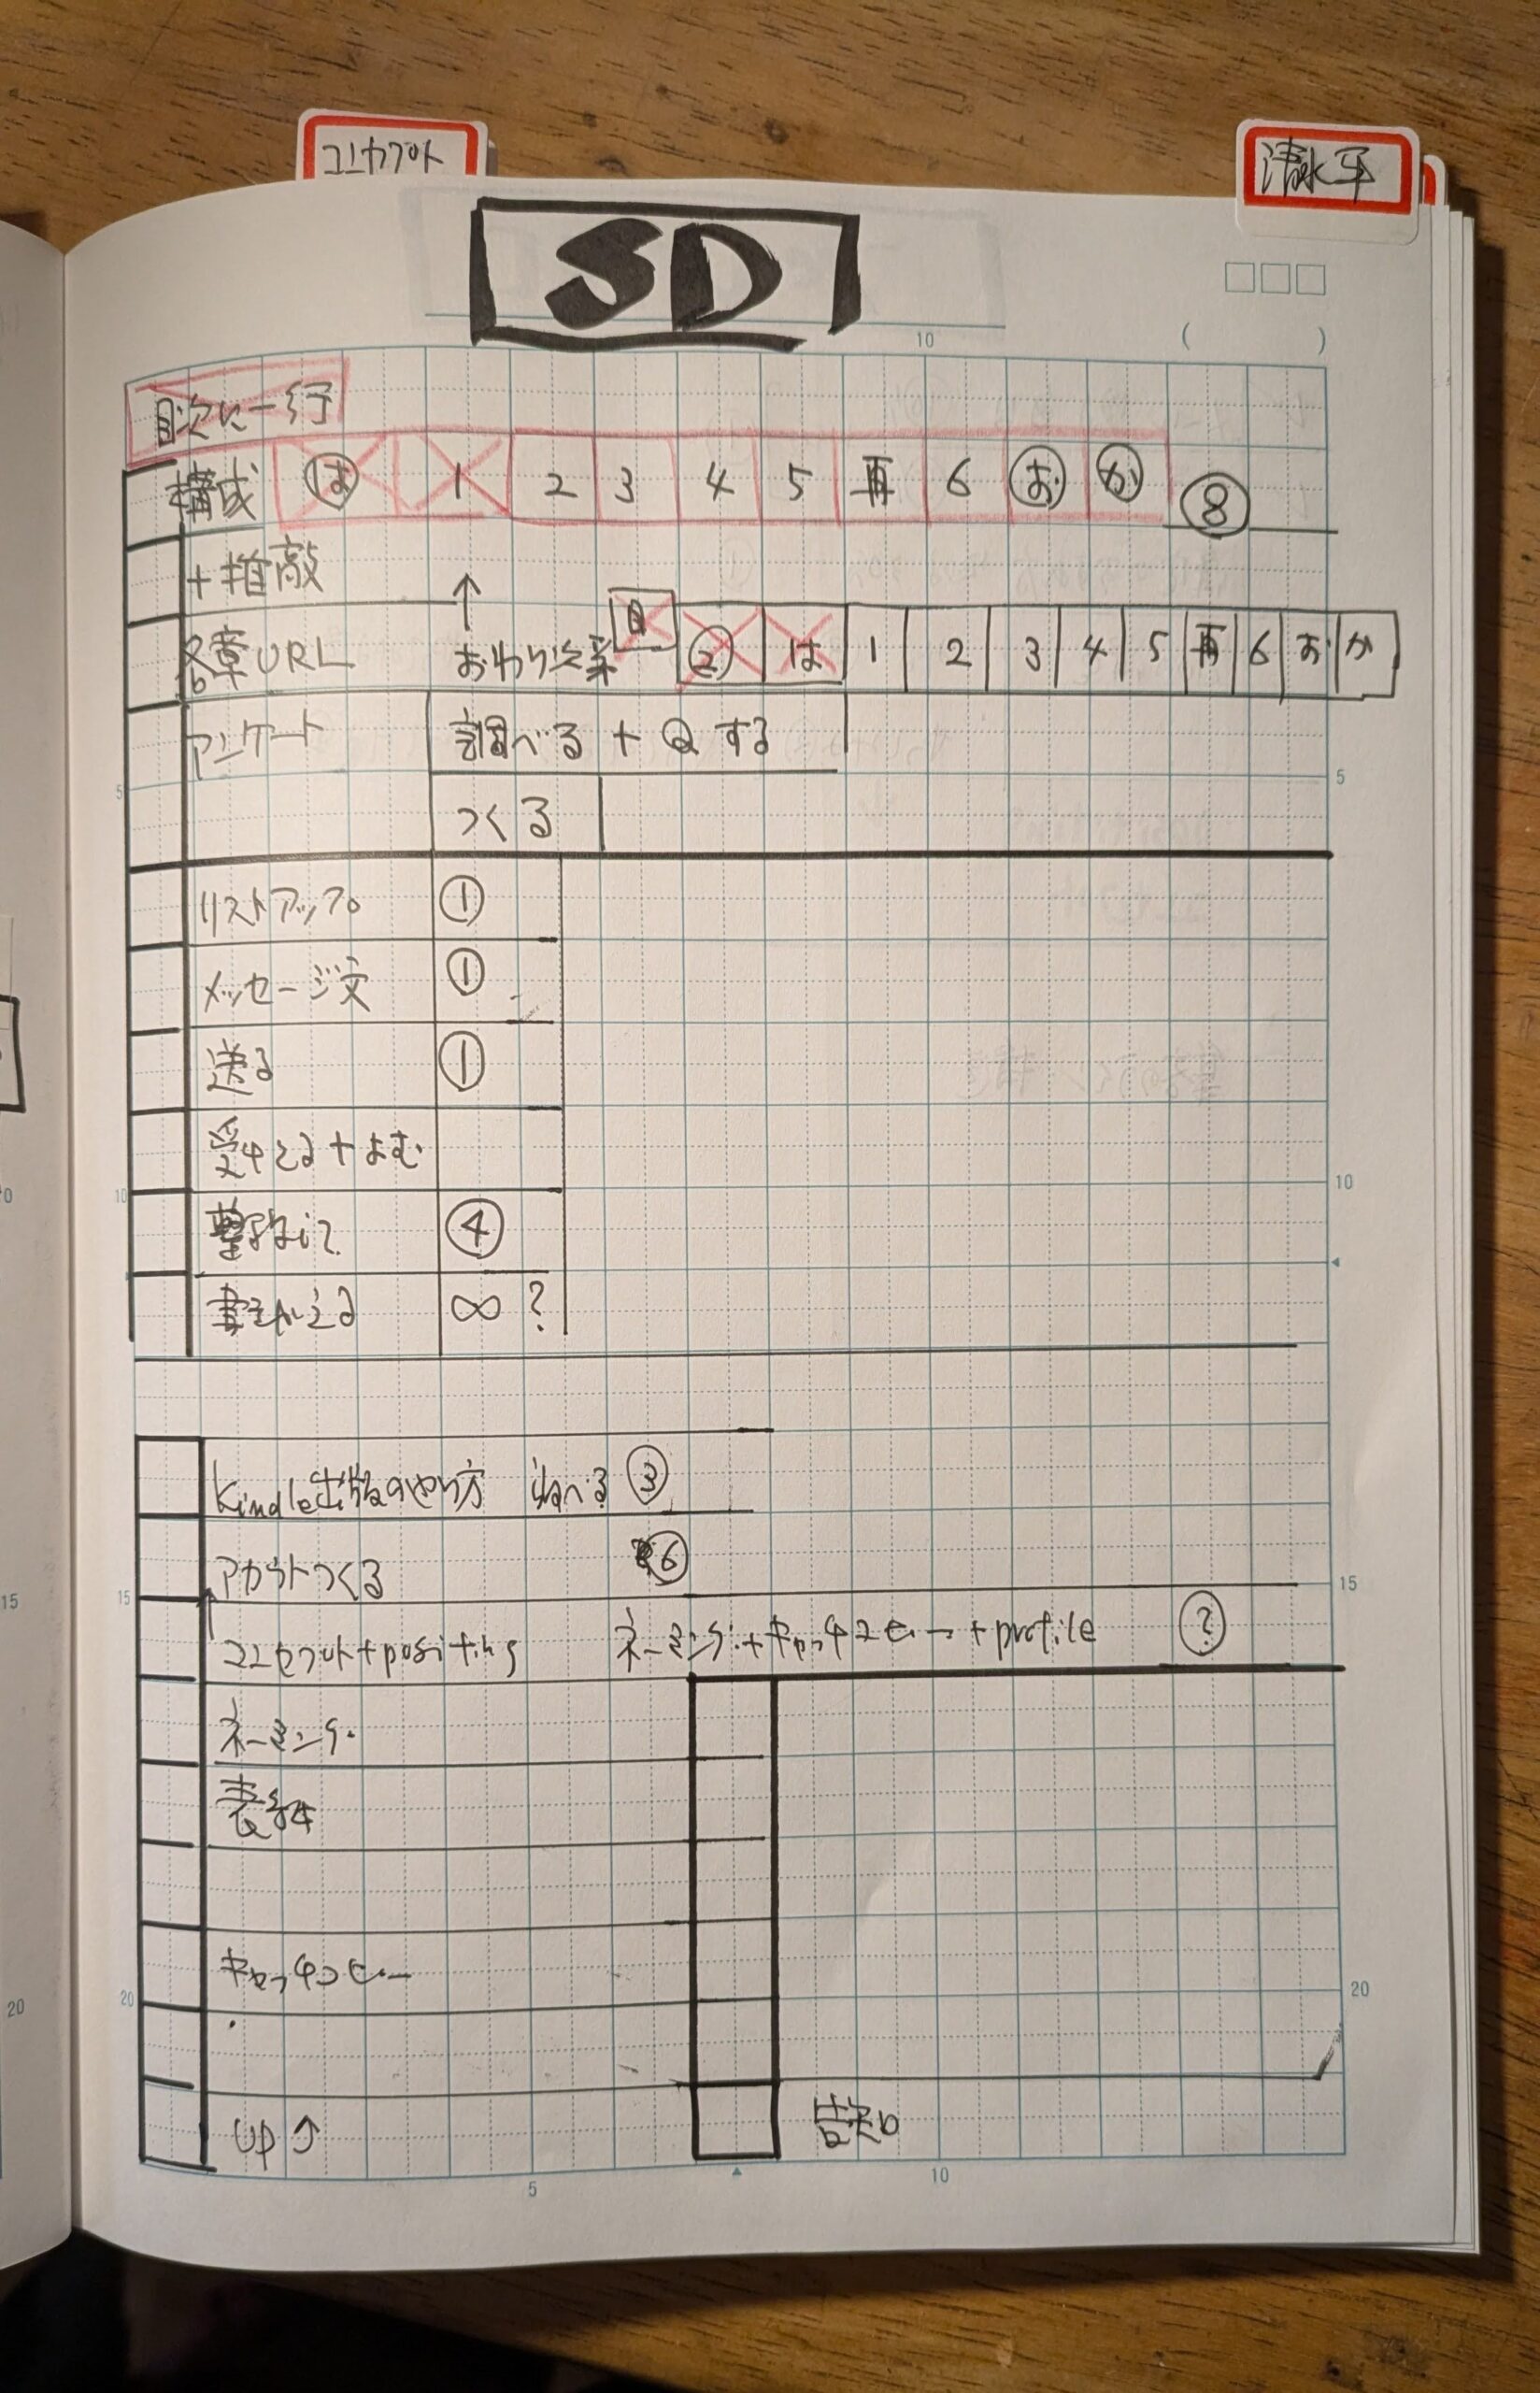 コンセプト
清水平
SD
10
( )
目次に一行
構成 は 1 2 3 4 5 再 6 お か ⑧
+推敲
各章URL ↑ おわり次第 目 ② は 1 2 3 4 5 再 6 お か
アンケート 調べる + Q する
5 5
つくる
リストアップ ①
メッセージ文 ①
送る ①
受けとる+よむ
10 10
④
書きかえる ∞ ?
Kindle出版のやり方 調べる ③
アカウントつくる ⑥
15 15 15
↑
コンセプト+positing ネーミング+キャッチコピー+profile ?
ネーミング
表紙
キャッチコピー
20 20 20
UP 告知
5 10